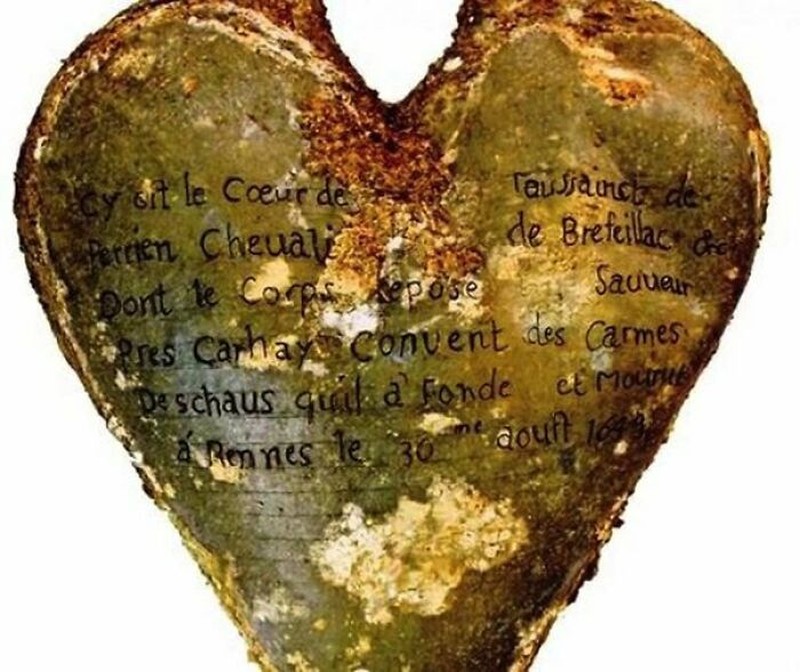 Cy Git le Coeur de Toussainct de
Perrien Chevali de Brefeillac &c
Dont le Corps Repose Sauveur
Pres Carhay Convent des Carmes
Deschaus quil a Fonde et Mourut
á Rennes le 30 me aoust 1649